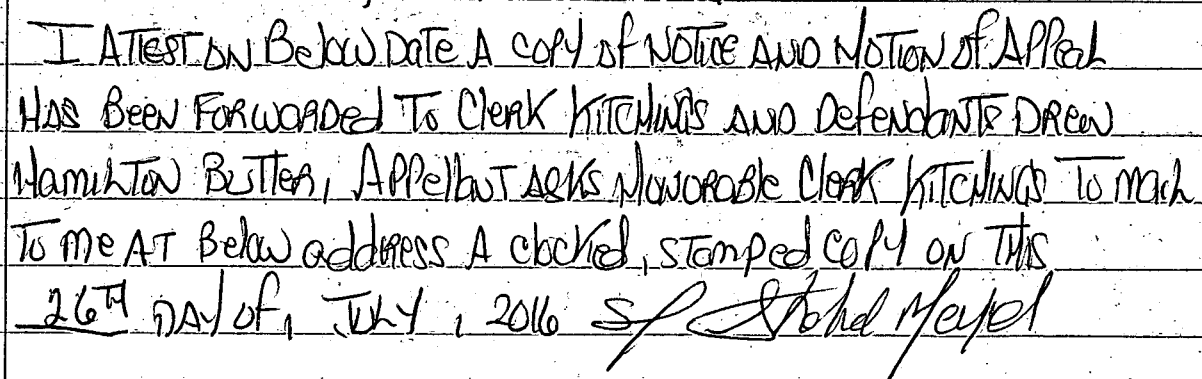 I ATTEST ON BeLow DaTe A COPY of NOTICE AND MOTION Of APPeaL
HAS BeeN FORWARDed To CLeRK KITCHINGS AND DefeNdaNTS DReW
HamiLTON BUTLeR, APPeLLaNT ASKS HONORABLe CLeRK KITCHINGS To maiL
To me AT BeLow addRess A cLocKed, sTamPed coPY ON THIS
26TH DAY of, JULY, 2016 S/